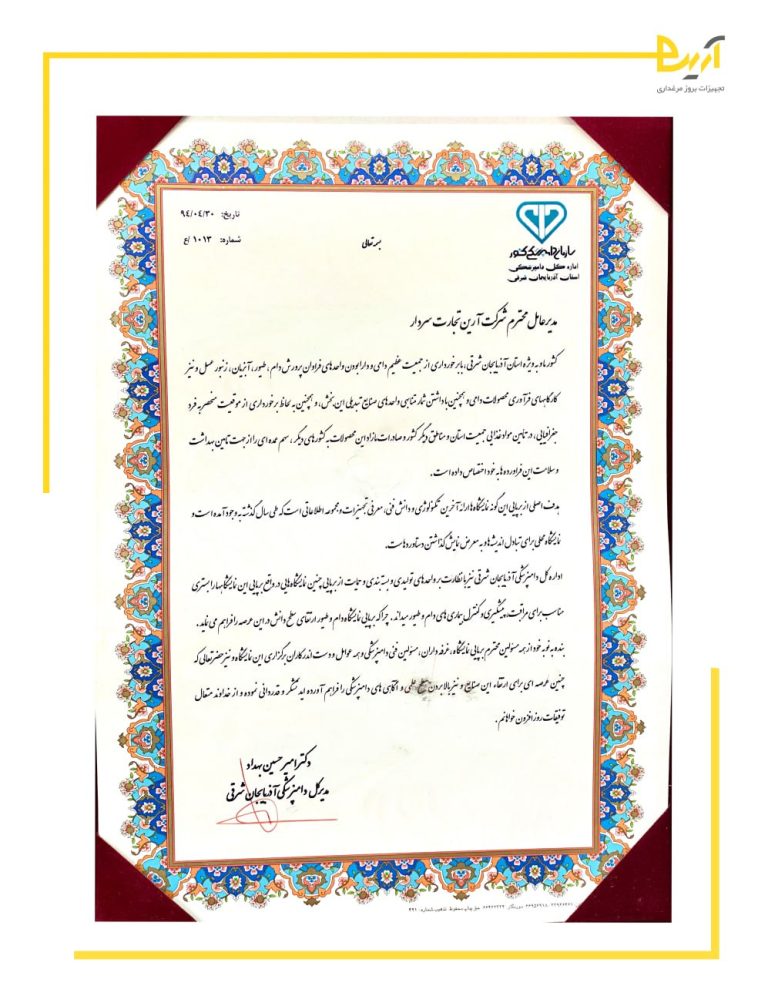 آرین
تجهیزات بروز مرغداری
تاریخ: ۹۴/۰۴/۳۰
شماره: ۱۰۱۳ /ع
بسمه تعالی
سازمان دامپزشکی کشور
اداره کل دامپزشکی
استان آذربایجان شرقی
مدیر عامل محترم شرکت آرین تجارت سردار
کشور ما، به ویژه استان آذربایجان شرقی، بنابر برخورداری از جمعیت عظیم دامی و دارا بودن واحدهای فراوان پرورش دام، طیور، آبزیان، زنبور عسل و نیز
کارگاههای فرآوری محصولات دامی و همچنین با داشتن شمار متنابهی واحدهای صنایع تبدیلی این بخش، و همچنین به لحاظ برخورداری از موقعیت منحصر به فرد
جغرافیایی، در تامین مواد غذایی جمعیت استان و مناطق دیگر کشور و صادرات مازاد این محصولات به کشورهای دیگر، سهم عمده ای را از جهت تامین بهداشت
و سلامت این فرآورده ها به خود اختصاص داده است.
هدف اصلی از برپایی این گونه نمایشگاه ها ارائه آخرین تکنولوژی و دانش فنی، معرفی تجهیزات و مجموعه اطلاعاتی است که طی سال گذشته به وجود آمده است و
نمایشگاه محلی برای تبادل اندیشه ها و به معرض نمایش گذاشتن دستاوردهاست.
اداره کل دامپزشکی آذربایجان شرقی نیز با نظارت بر واحدهای تولیدی و بسته بندی و حمایت از برپایی چنین نمایشگاه هایی در واقع برپایی این نمایشگاهها را بستری
مناسب برای مراقبت، پیشگیری و کنترل بیماری های دام و طیور میداند. چرا که برپایی نمایشگاه دام و طیور ارتقای سطح دانش در این عرصه را فراهم می نماید.
بنده به نوبه خود از همه مسئولین محترم برپایی نمایشگاه، غرفه داران، مسئولین فنی دامپزشکی و همه عوامل و دست اندرکاران برگزاری این نمایشگاه و نیز حضرتعالی که
چنین عرصه ای برای ارتقاء این صنایع و نیز بالا بردن سطح علمی و آگاهی های دامپزشکی را فراهم آورده اید تشکر و قدردانی نموده و از خداوند متعال
توفیقات روز افزون خواهانم.
دکتر امیر حسین بهداد
مدیرکل دامپزشکی آذربایجان شرقی
حق چاپ محفوظ